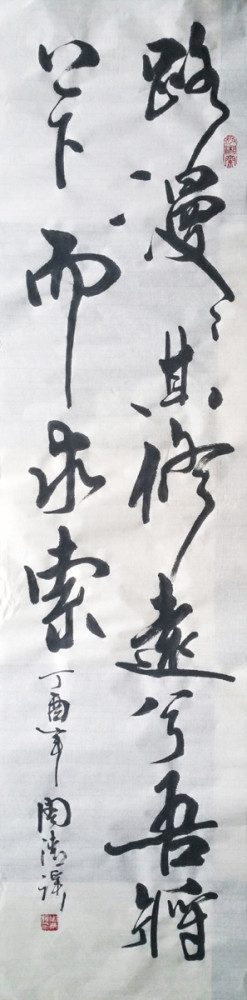 路漫漫其修远兮吾将
上下而求索
丁酉年 周清